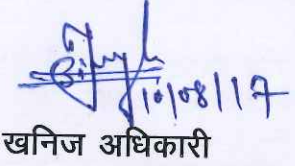 10/08/17
खनिज अधिकारी